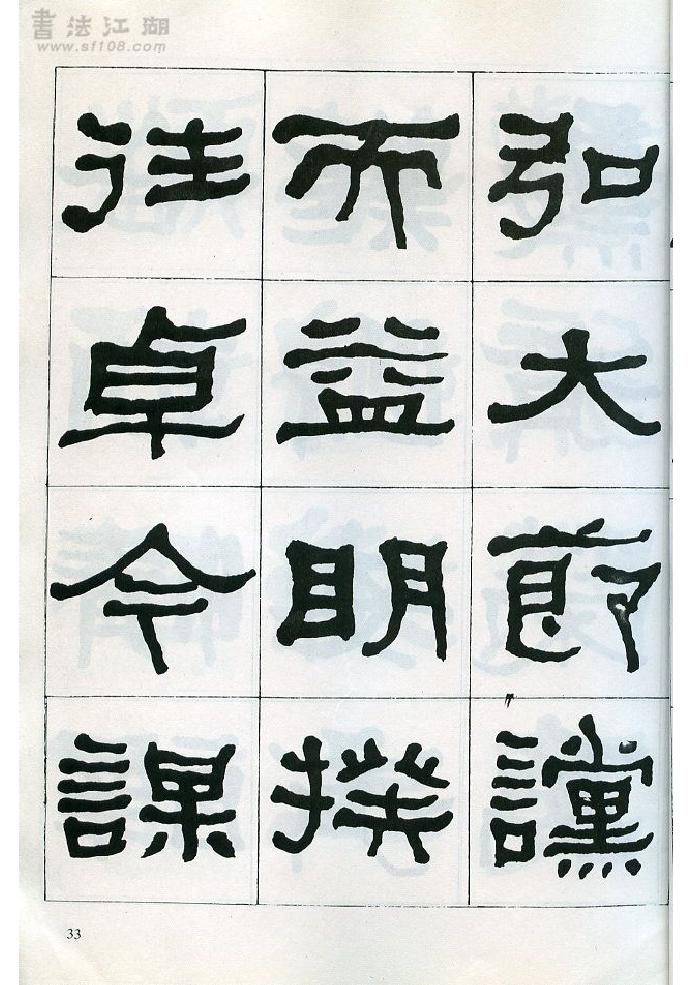 書法江湖
www.sf108.com
弘大節讜
而益眀揆
往卓今謀
33